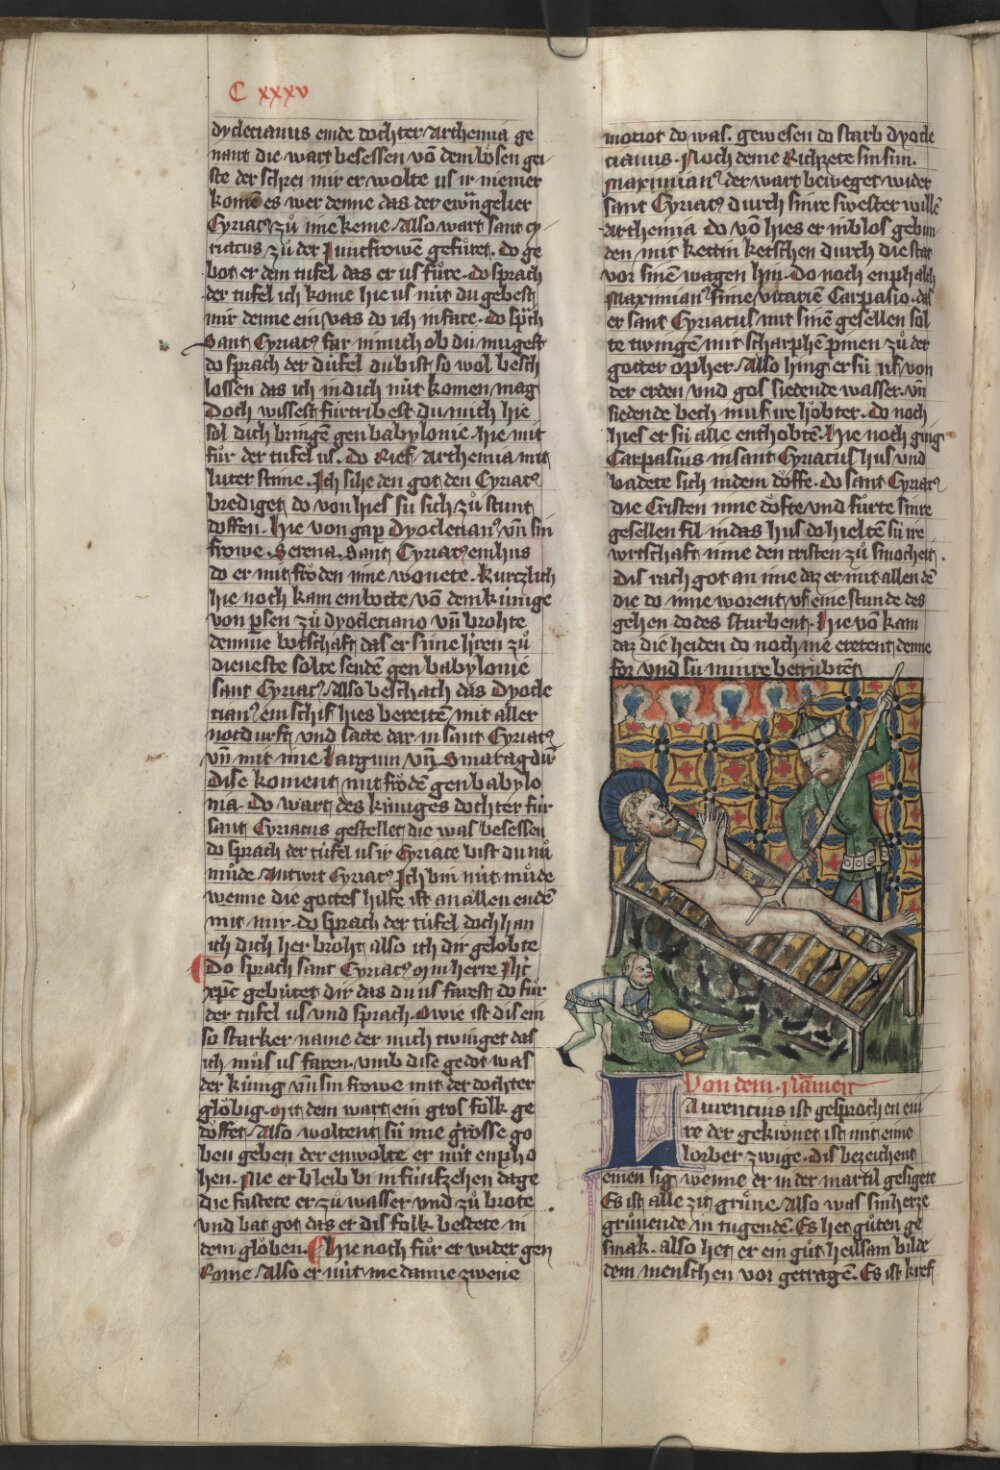 C xxxv
dycletianus einde dochter Arthemia ge
nant die wart besessen võ dem bösen gei
ste der schrei mir er wolte us ir niemer
komẽ es wer denne das der ewãgelier
Cyriac⁹ zů ime keme Also wart sant cy
riacus zů der Juncfrowẽ gefůret. do ge
bot er dem tufel das er us fůre. do sprach
der tufel ich kome hie us nüt du gebest
mir denne ein vas do ich in fare. do sp̃ch
Sant Cyriac⁹ far in mich ob du mugest
do sprach der düfel du bist so wol besch
lossen das ich in dich nüt komen mag
Doch wissest fürtribest du mich hie
sol dich bringẽ gen babylonie. hie mit
fůr der tufel us. do Rief Arthemia mit
luter stime. Ich sihe den got den Cyriac⁹
brediget do von hies sü sich zů stunt
doffen. hie von gap Dyocletian⁹ vñ sin
frowe. Serena. Sant Cyriac⁹ ein hus
do er mit fröden inne wonete. kurczlich
hie noch kam ein botte võ dem künige
von p̲sen zů dyocletiano vñ brohte
demme botschaft das er sime hren zů
dieneste solte sendẽ gen babylonie
sant Cyriac⁹. Also beschach das Dyocle
tian⁹ ein schif hies bereitẽ mit aller
notdurft vnd satte dar in sant Cyriac⁹
vñ mit ime Largum vñ Smaragdũ
Dise koment mit frödẽ gen babylo
nia. Do wart des küniges dochter für
sant Cyriacus gestellet die was besessen
do sprach der tüfel us ir Cyriace bist du nů
můde Antwrt Cyriac⁹ Ich bin nüt můde
wenne die gottes hilfe ist an allen endẽ
mit mir. do sprach der tüfel doch han
ich dich her broht also ich dir gelobte
Do sprach sant Cyriac⁹ min herre Jhc̃
xp̃c gebütet dir das du us farest do fůr
der tufel us vnd sprach. Owie ist dis ein
so starker name der mich twinget das
ich můs us faren. vmb dise gedot was
der kung vñ sin frowe mit der dochter
glöbig. mit dem wart ein gros folk ge
döffet Also woltent sü ime grosse go
ben geben der enwolte er nüt enpho
hen. Me er bleib bi in fünfzehen dage
die fastete er zů wasser vnd zů brote
vnd bat got das er dis folk bestete in
dem glöben. hie noch fůr er wider gen
Rome Also er nüt me danne zwene
motiot do was. gewesen do starb dyocle
tianus. Noch deme Richßete sin sun.
Maximian⁹ der wart beweget wider
sant Cyriac⁹ durch sinre swester willẽ
Arthemia do võ hies er in blos gebun
den mit kettin ketschen durch die stat
vor sinẽ wagen hin. Do noch enphalch
Maximian⁹ sime vicariẽ Carpasio. das
er sant Cyriacus mit sinẽ gesellen sol
te twingẽ mit scharphẽ pinen zů der
gotter opher. Also hing er sü uf von
der erden vnd gos siedende wasser. vñ
siedende bech in uf ire höbter. do noch
hies er sü alle enthobtẽ. hie noch ging
Carpasius in sant Cyriacus hus vnd
badete sich in dem döffe. do sant Cyriac⁹
die Cristen inne döfte vnd fůrte sinre
gesellen fil in das hus do hieltẽ sü ire
wirtschaft inne den cristen zů smocheit.
Dis rach got an ime daz er mit allen dẽ
die do inne worent vf eine stunde des
gehen dodes sturbent. Hie võ kam
daz die heiden do noch me eretent denne
for vnd sü minre betrůbtẽt
Von dem. Namen
Laurencius ist gesprochen ein
re der gekrönet ist mit eime
lorber zwige. dis bezeichent
einen sig. wenne er in der martil gesigete
Es ist alle zit grůne. Also was sin herze
grůnende in tugendẽ. Es het gůten ge
smak. also het er ein gůt heilsam bilde
dem menschen vor getragẽ. Es ist kref